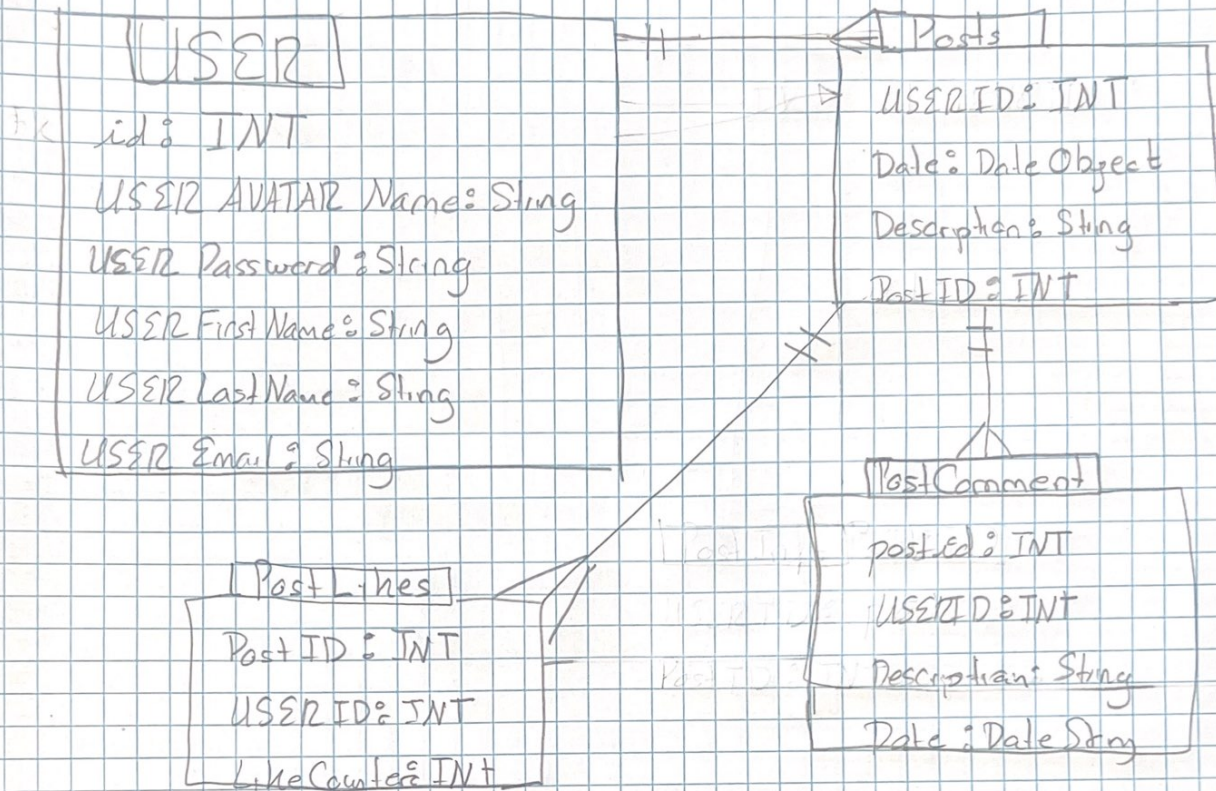 USER
id: INT
USER AVATAR Name: String
USER Password: String
USER First Name: String
USER Last Name: String
USER Email: String
Posts
USER ID: INT
Date: Date Object
Description: String
Post ID: INT
PostComment
postId: INT
USERID: INT
Description: String
Date: Date String
Post Likes
Post ID: INT
USER ID: INT
Like Counter: INT